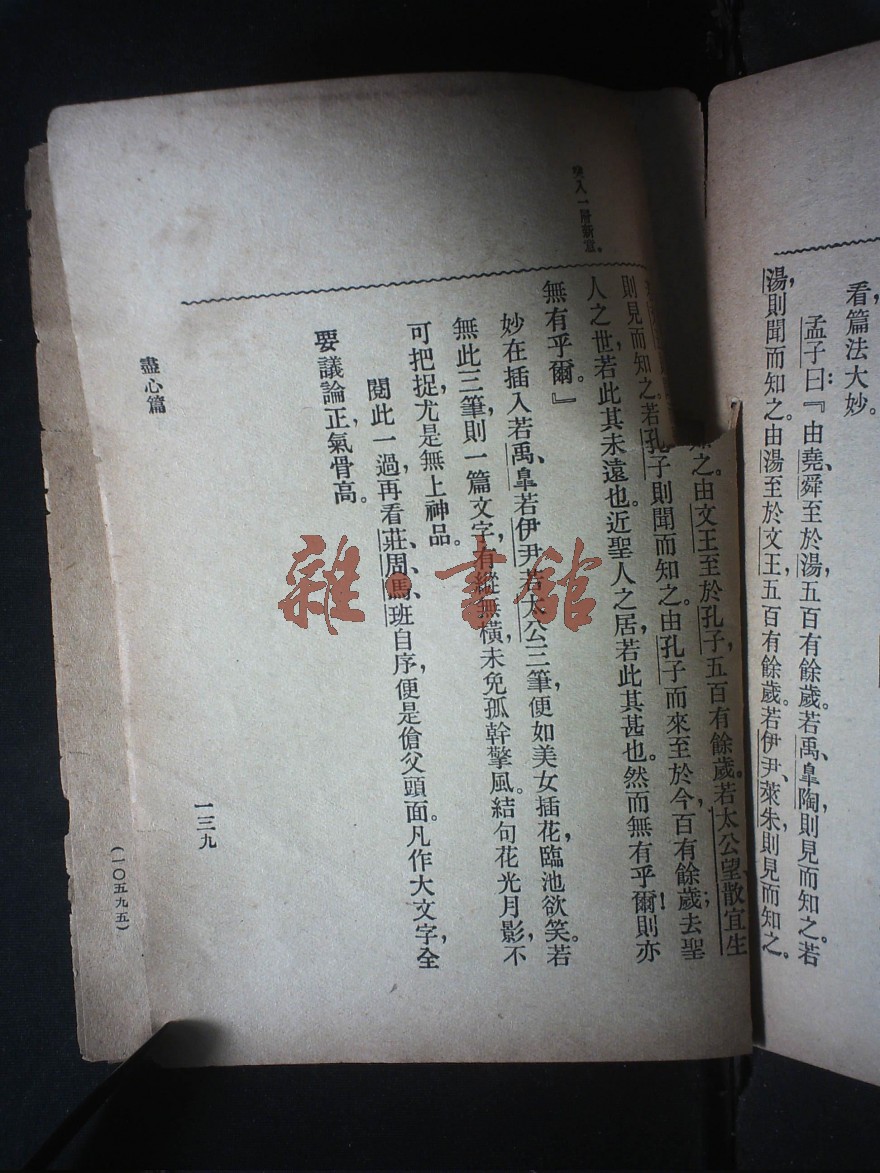 看篇法大妙。
孟子曰：『由堯、舜至於湯，五百有餘歲。若禹、皐陶，則見而知之。若
湯，則聞而知之。由湯至於文王，五百有餘歲。若伊尹、萊朱，則見而知之。
知之。由文王至於孔子，五百有餘歲。若太公望、散宜生
則見而知之。若孔子則聞而知之。由孔子而來至於今，百有餘歲；去聖
人之世，若此其未遠也。近聖人之居，若此其甚也。然而無有乎爾！則亦
無有乎爾。』
妙在插入若禹、皐若伊尹若太公三筆，便如美女插花，臨池欲笑。若
無此三筆，則一篇文字，有縱無橫，未免孤幹擎風。結句花光月影，不
可把捉，尤是無上神品。
閱此一過，再看莊、周、馬、班自序，便是傖父頭面。凡作大文字，全
要議論正，氣骨高。
入一層新意。
盡心篇
一三九
(一〇五九五)
雜·書館